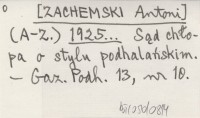 [ZACHEMSKI Antoni]
(A-Z.) 1925... Sąd chło-
pa o stylu podhalańskim.
– Gaz. Podh. 13, nr 10.